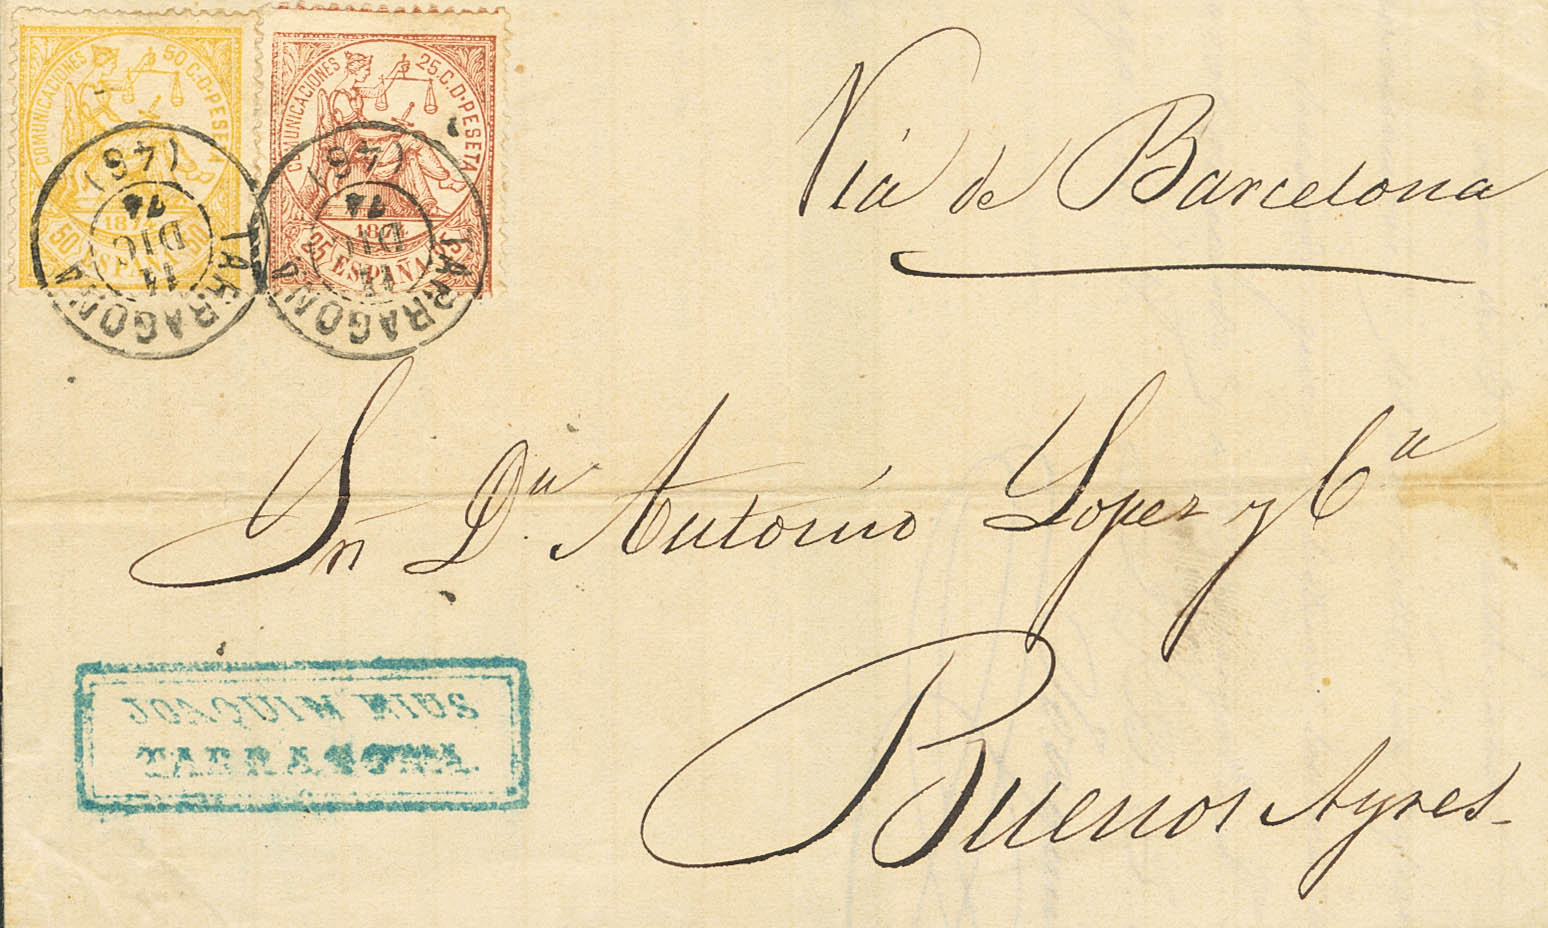 COMUNICACIONES 50 C. D. PESETA
1874
50 ESPAÑA 50
COMUNICACIONES 25 C. D. PESETA
1874
25 ESPAÑA 25
TARRAGONA
14
DIC
74
(48)
TARRAGONA
14
DIC
74
(48)
Via de Barcelona
Sr Dn Antonio Lopez y Ca
Buenos Ayres-
JOAQUIM MIUS
TARRAGONA.